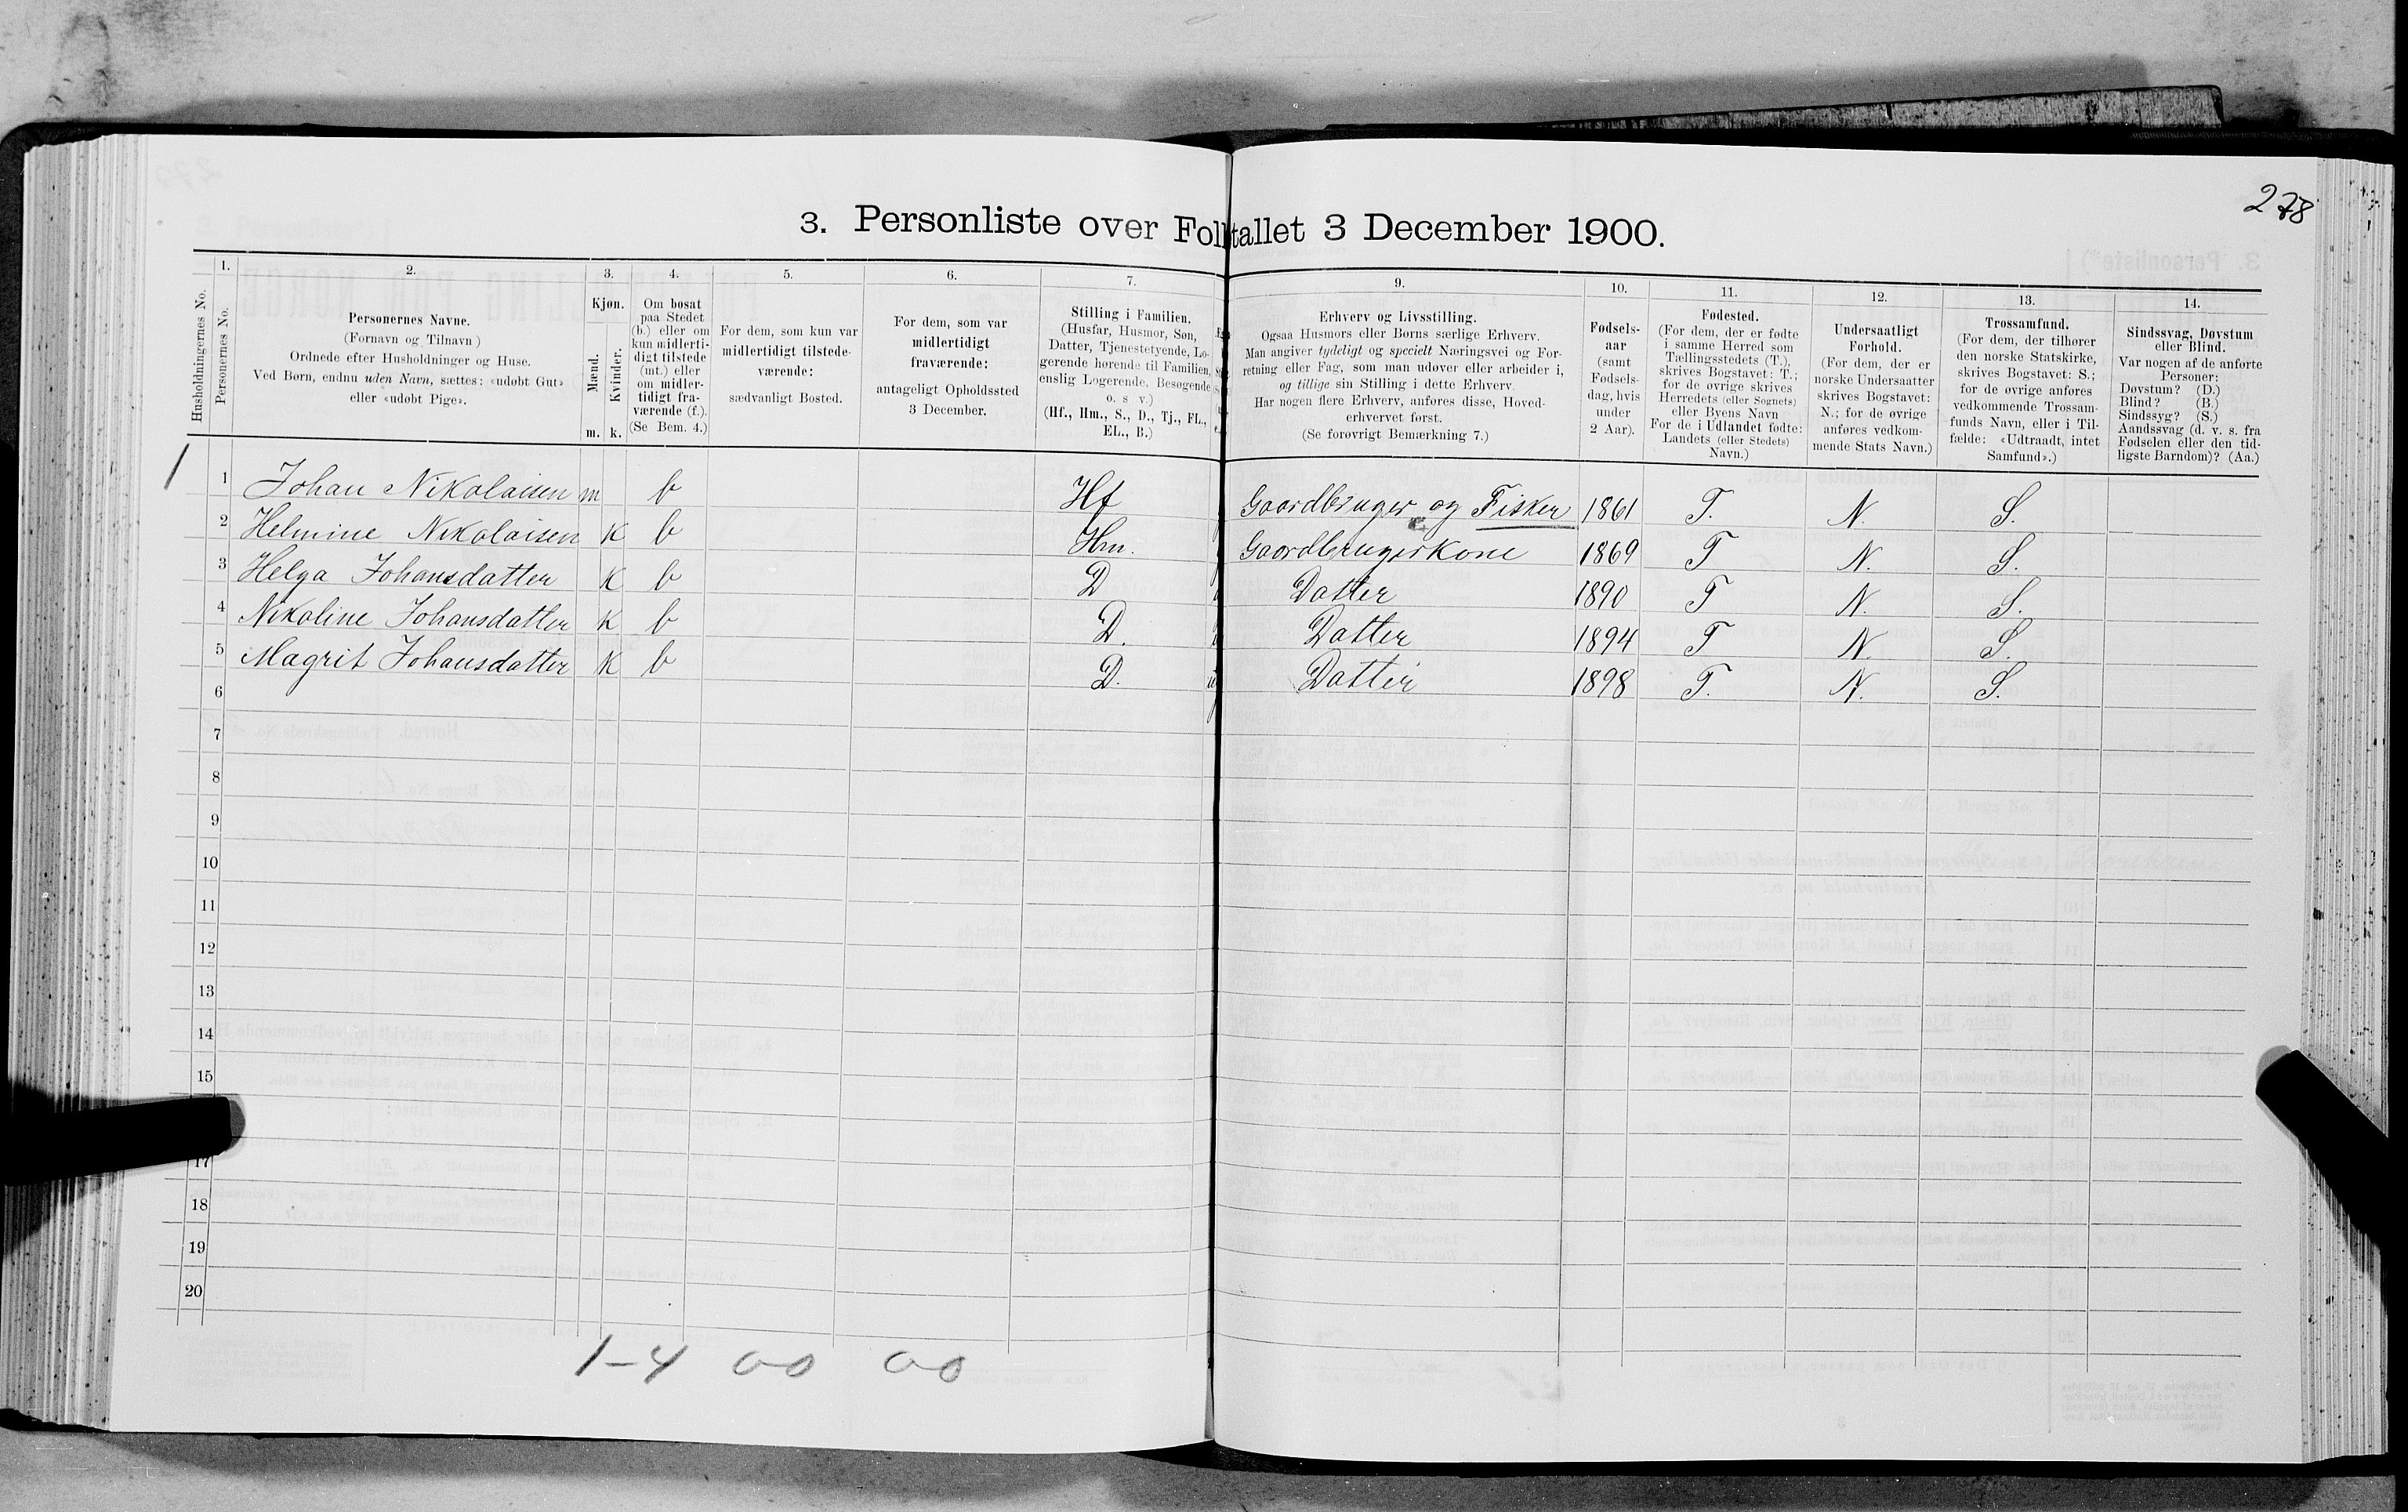 278
3. Personliste over Folketallet 3 December 1900.
1. 2. 3. 4. 5. 6. 7. 9. 10. 11. 12. 13. 14.
Husholdningernes No.
Personernes No.
Personernes Navne.
(Fornavn og Tilnavn)
Ordnede efter Husholdninger og Huse.
Ved Børn, endnu uden Navn, sættes: «udøbt Gut»
eller «udøbt Pige».
Kjøn.
Mænd.
Kvinder.
m. k.
Om bosat
paa Stedet
(b.) eller om
kun midlerti-
digt tilstede
(mt.) eller
om midler-
tidigt fra-
værende (f.).
(Se Bem. 4.)
For dem, som kun var
midlertidigt tilstede-
værende:
sædvanligt Bosted.
For dem, som var
midlertidigt
fraværende:
antageligt Opholdssted
3 December.
Stilling i Familien.
(Husfar, Husmor, Søn,
Datter, Tjenestetyende, Lo-
gerende hørende til Familien,
enslig Logerende, Besøgende
o. s v.)
(Hf., Hm., S., D., Tj., FL.,
EL., B.)
Erhverv og Livsstilling.
Ogsaa Husmors eller Børns særlige Erhverv.
Man angiver tydeligt og specielt Næringsvei og For-
retning eller Fag, som man udøver eller arbeider i,
og tillige sin Stilling i dette Erhverv.
Har nogen flere Erhverv, anføres disse, Hoved-
erhvervet først.
(Se forøvrigt Bemærkning 7.)
Fødsels-
aar
(samt
Fødsels-
dag, hvis
under
2 Aar).
Fødested.
(For dem, der er fødte
i samme Herred som
Tællingsstedets (T.),
skrives Bogstavet: T.;
for de øvrige skrives
Herredets (eller Sognets)
eller Byens Navn
For de i Udlandet fødte:
Landets (eller Stedets)
Navn.)
Undersaatligt
Forhold.
(For dem, der er
norske Undersaatter
skrives Bogstavet:
N.; for de øvrige
anføres vedkom-
mende Stats Navn.)
Trossamfund.
(For dem, der tilhører
den norske Statskirke,
skrives Bogstavet: S.;
for de øvrige anføres
vedkommende Trossam-
funds Navn, eller i Til-
fælde: «Udtraadt, intet
Samfund».)
Sindssvag, Døvstum
eller Blind.
Var nogen af de anførte
Personer:
Døvstum? (D.)
Blind? (B.)
Sindssyg? (S.)
Aandssvag (d. v. s. fra
Fødselen eller den tid-
ligste Barndom)? (Aa.)
1 1 Johan Nikolaisen m b Hf Gaardbruger og Fisker 1861 T. N. S.
2 Helmine Nikolaisen K b Hm. Gaardbrugerkone 1869 T N. S.
3 Helga Johansdatter K b D Datter 1890 T N. S.
4 Nikoline Johansdatter K b D. Datter 1894 T N. S.
5 Magrit Johansdatter K b D. Datter 1898 T. N. S.
6
7
8
9
10
11
12
13
14
15
17
18
19
20
1-4 0-0 0-0